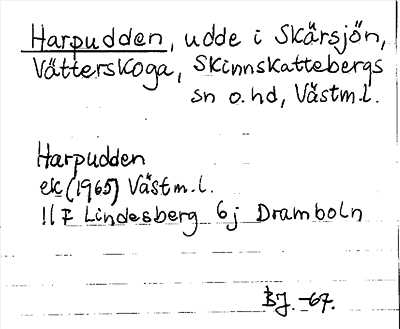 Harpudden, udde i Skärsjön,
Vätterskoga, Skinnskattebergs
sn o. hd, Västm.l.
Harpudden
ek (1965) Västm.l.
11F Lindesberg 6j Dramboln
BJ. -67.